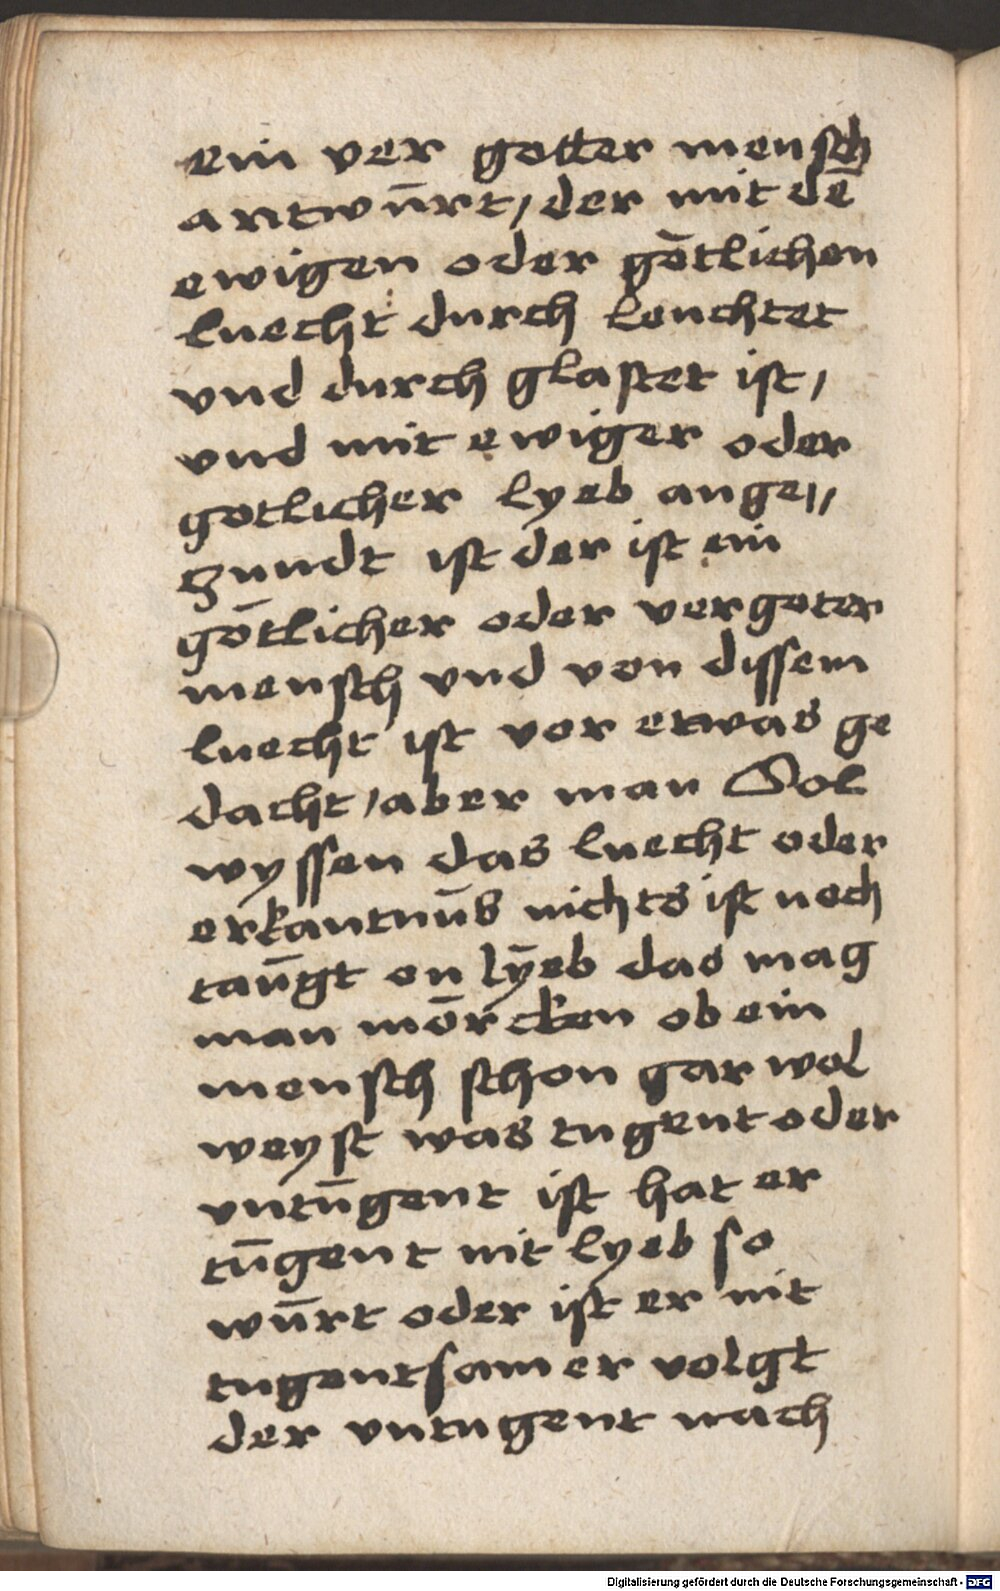 ein ver gotter mensch
antwu̅rt / der mit de̅
ewigen oder go̅tlichen
luecht durch leuchtet
vnd durch glastet ist /
vnd mit ewiger oder
gotlicher lyeb ange //
zundt ist der ist ein
go̅tlicher oder vergoter
mensch vnd von dissem
luecht ist vor etwas ge
dacht / aber man Sol
wyssen das luecht oder
erkantnu̅s nichts ist noch
tau̅gt on ly̅eb das mag
man mo̅rcken ob ein
mensch schon gar wol
weyst was tugent oder
vntu̅gent ist hat er
tu̅gent nit lyeb so
wu̅rt oder ist er nit
tugentsam er volgt
der vntugent nach
Digitalisierung gefördert durch die Deutsche Forschungsgemeinschaft - DFG